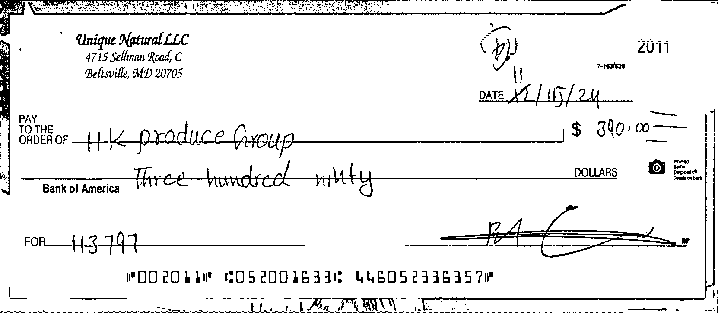 Unique Natural LLC
4715 Sellman Road, C
Beltsville, MD 20705
2011
11
DATE 12/15/24
PAY
TO THE
ORDER OF H K produce Group $ 390.00
Three hundred ninty DOLLARS
Bank of America
FOR 113797
⑈002011⑈ ⑆052001633⑆ 446052336357⑈